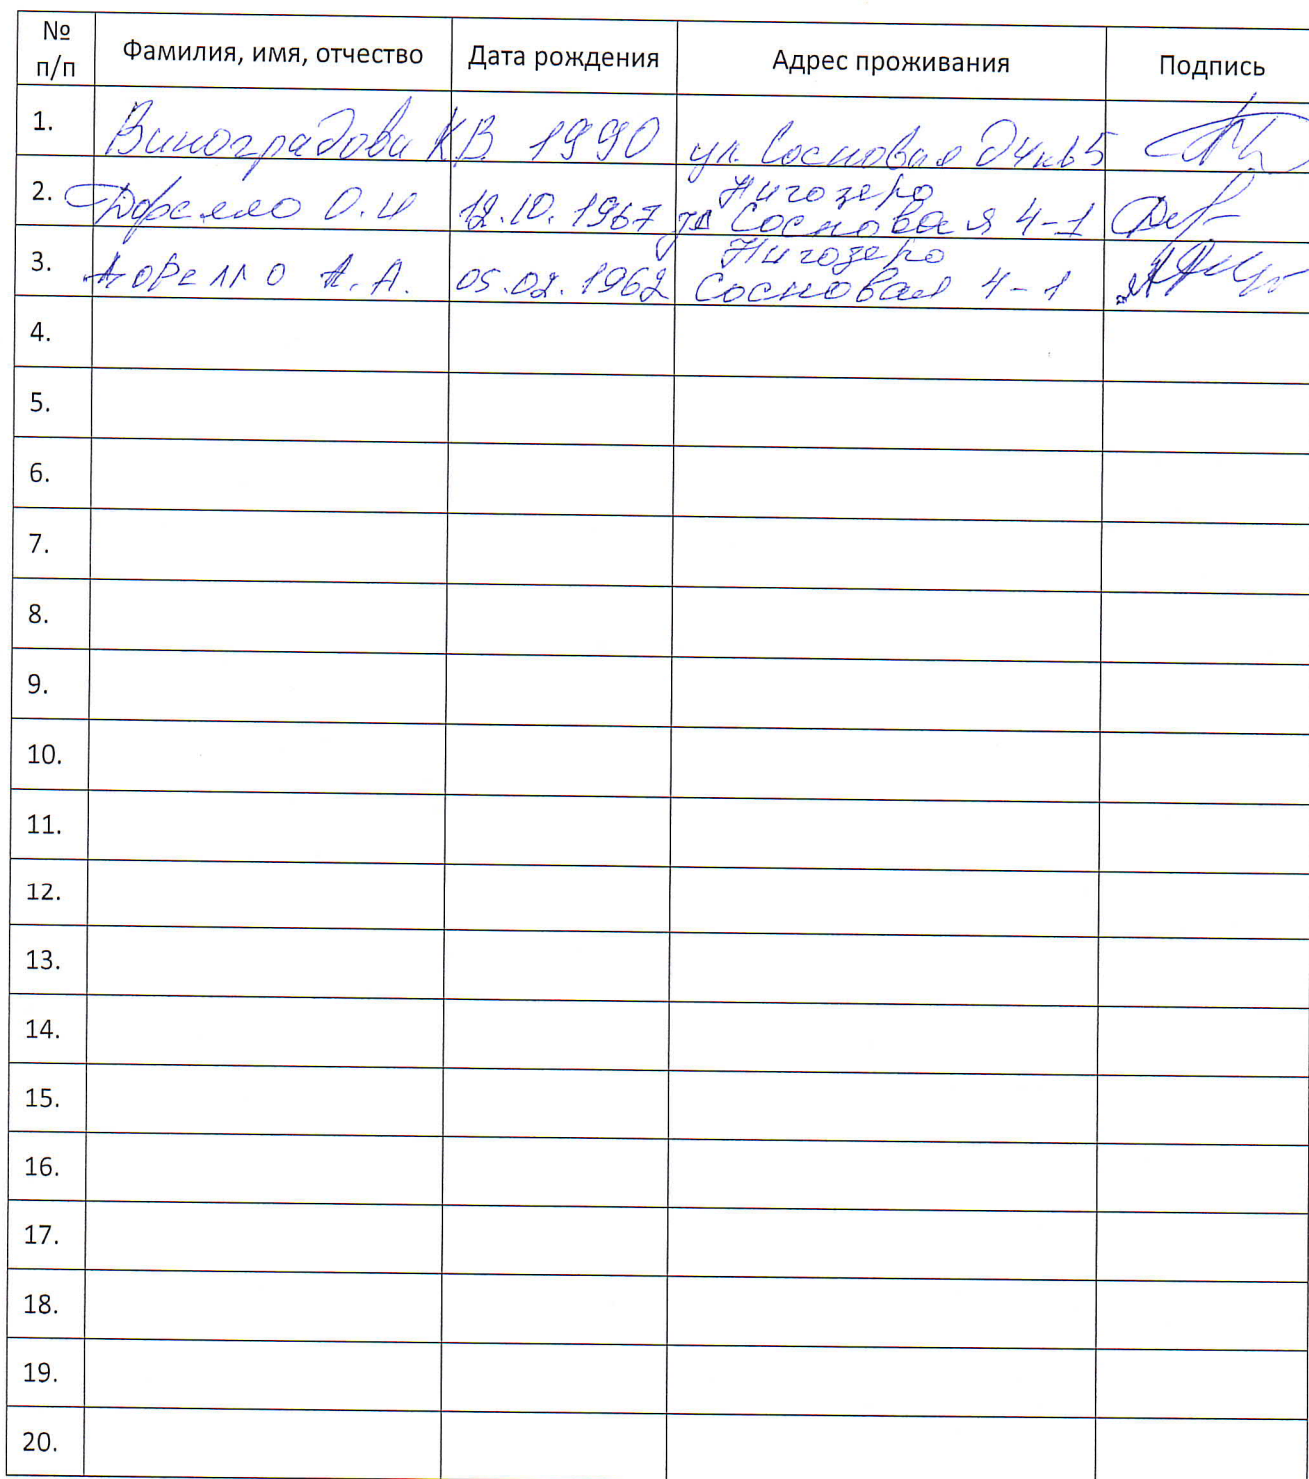 № п/п Фамилия, имя, отчество Дата рождения Адрес проживания Подпись
1. Виноградова К.В. 1990 ул. Сосновая д4кв5
2. Дорелло О.И 12.10.1967 Нигозеро
ул Сосновая 4-1
3. Дорелло А.А. 05.02.1962 Нигозеро
Сосновая 4-1
4.
5.
6.
7.
8.
9.
10.
11.
12.
13.
14.
15.
16.
17.
18.
19.
20.